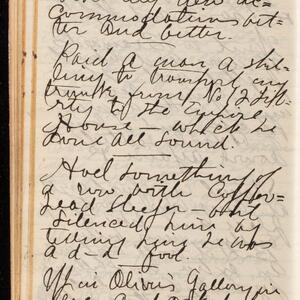 commodations bet-
ter and better.
Paid a man a shil-
ling to transport my
trunk from No. 2 Lib-
rty to the Empire
House which he
done all sound.
Had something of
a row with Copper-
head Keefer — and
silenced him by
telling him he was
a d—d fool.
Up in Oliver's Gallery in